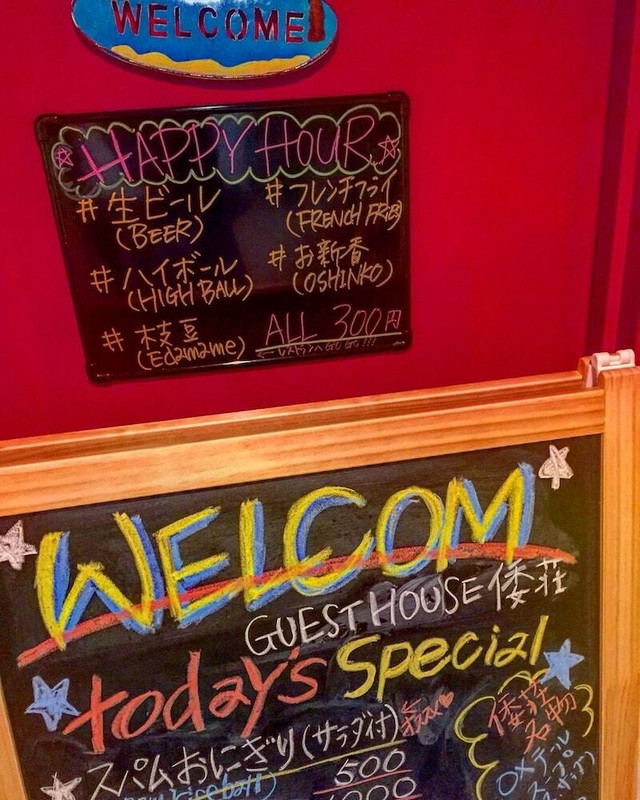 WELCOME
HAPPY HOUR
#生ビール
(BEER)
#ハイボール
(HIGH BALL)
#枝豆
(Edamame)
#フレンチフライ
(FRENCH FRIES)
#お新香
(OSHINKO)
ALL 300円
WELCOM
GUEST HOUSE 倭荘
today's Special
スパムおにぎり(サラダ付)
rice ball)
500
倭荘
名物
テール
スープ